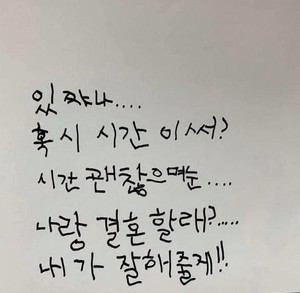 있쟈나....
혹시 시간 이써?
시간 괜찮으며순....
나랑 결혼할래?....
내가 잘해줄게!!